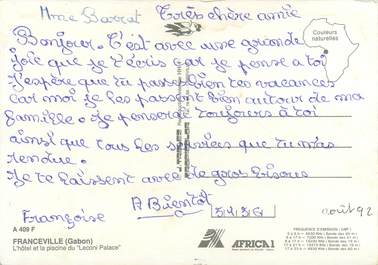 Mme Barrat
Très chère amie
Bonjour. C'est avec une grande
joie que je t'écris car je pense à toi
J'espère que tu passes bien tes vacances
car moi je les passent bien autour de ma
famille. Je penserai toujours à toi
ainsi que tous les services que tu m'as
rendue.
Je te laissent avec de gros bisous
A Bientôt
Françoise
août 92
Couleurs
naturelles
A 409 F
FRANCEVILLE (Gabon)
L'hôtel et la piscine du "Leconi Palace"
AFRICA 1